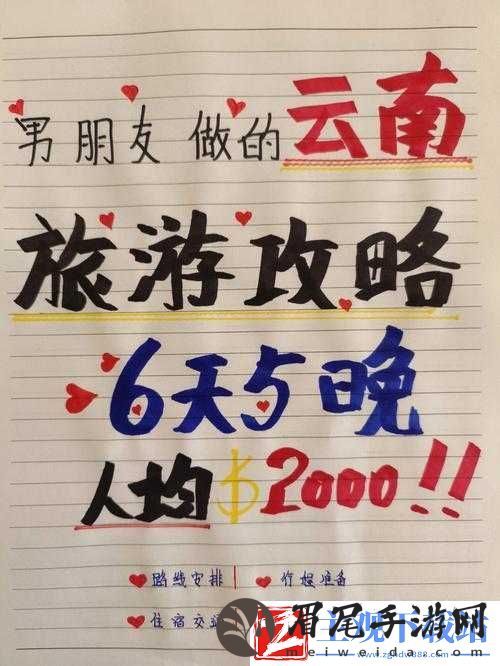 男朋友 做的云南
旅游攻略
6天5晚
人均$2000!!
路线安排 | 行程准备
住宿交通
眉尾手游网
www.meiweida.com